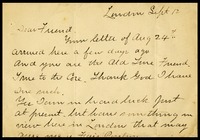 London Sept 12
Dear Friend
Your letter of Aug 24th
arrived here a few days ago
And you are the Old Time Friend
to me to the Core. Thank God I have
one such.
The Town in hard luck just
at present, but have something in
view here in London that may